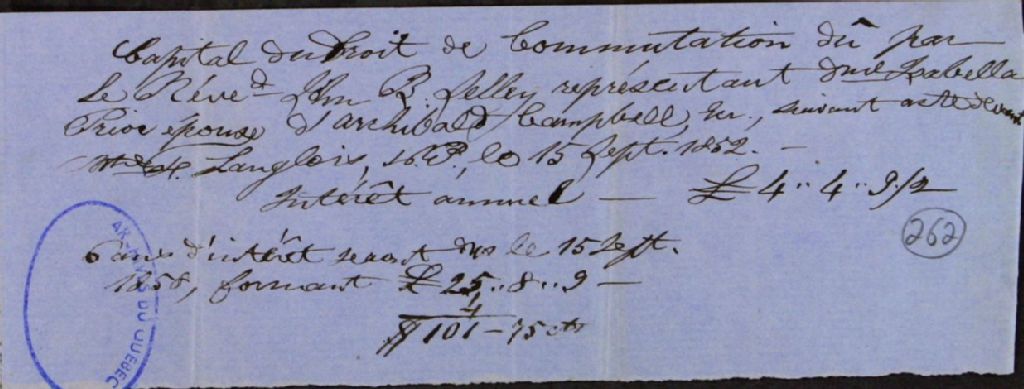 Capital du Droit de Commutation dû par
le Révé.d John B. Selley représentant Dme Isabella
Prior épouse d'archibald Campbell, Ecr., suivant acte devant
Langlois, N.P., le 15 Sept. 1852. —
Intérêt annuel — £ 4 .. 4 .. 9 1/2
262
6 ans d'intérêt seront dus le 15 Sept.
1858, formant £ 25 .. 8 .. 9 —
4
$ 101 - 75 cts
DU QUEBEC